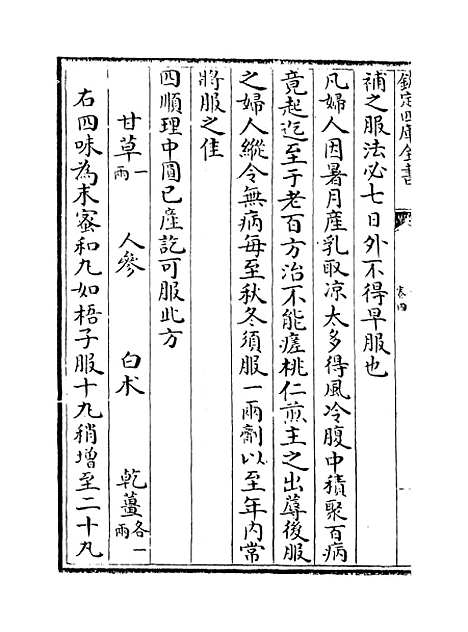 欽定四庫全書
卷四
補之服法必七日外不得早服也
凡婦人因暑月産乳取凉太多得風冷腹中積聚百病
竟起迄至于老百方治不能瘥桃仁煎主之出蓐後服
之婦人縱令無病每至秋冬須服一兩劑以至年內常
將服之佳
四順理中圓已産訖可服此方
甘草一兩 人參 白术 乾薑各一兩
右四味為末蜜和丸如梧子服十丸稍增至二十丸